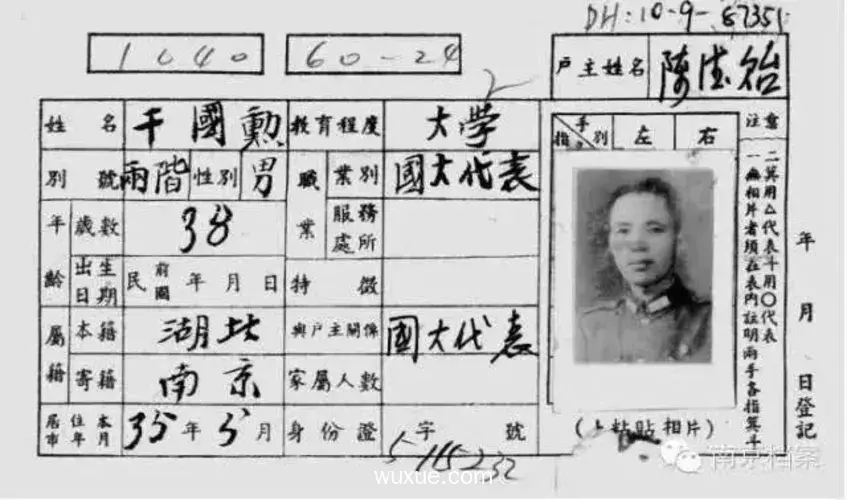 DH:10-9-87351
1040 60-24
戶主姓名 陳德貽
姓名 干國勳 教育程度 大學
別號 兩階 性別 男 職業 業別 國大代表
年齡 歲數 38 服務處所
出生日期 民前國 年 月 日 特徵
屬籍 本籍 湖北 與戶主關係 國大代表
寄籍 南京 家屬人數
居住本市年月 35年5月 身份證 字 號
5115232
指 手別 左 右
(上粘貼相片)
注意
一無相片者須在表內註明兩手各指箕斗
二箕用△代表斗用〇代表
年 月 日登記
南京档案
wuxue.com